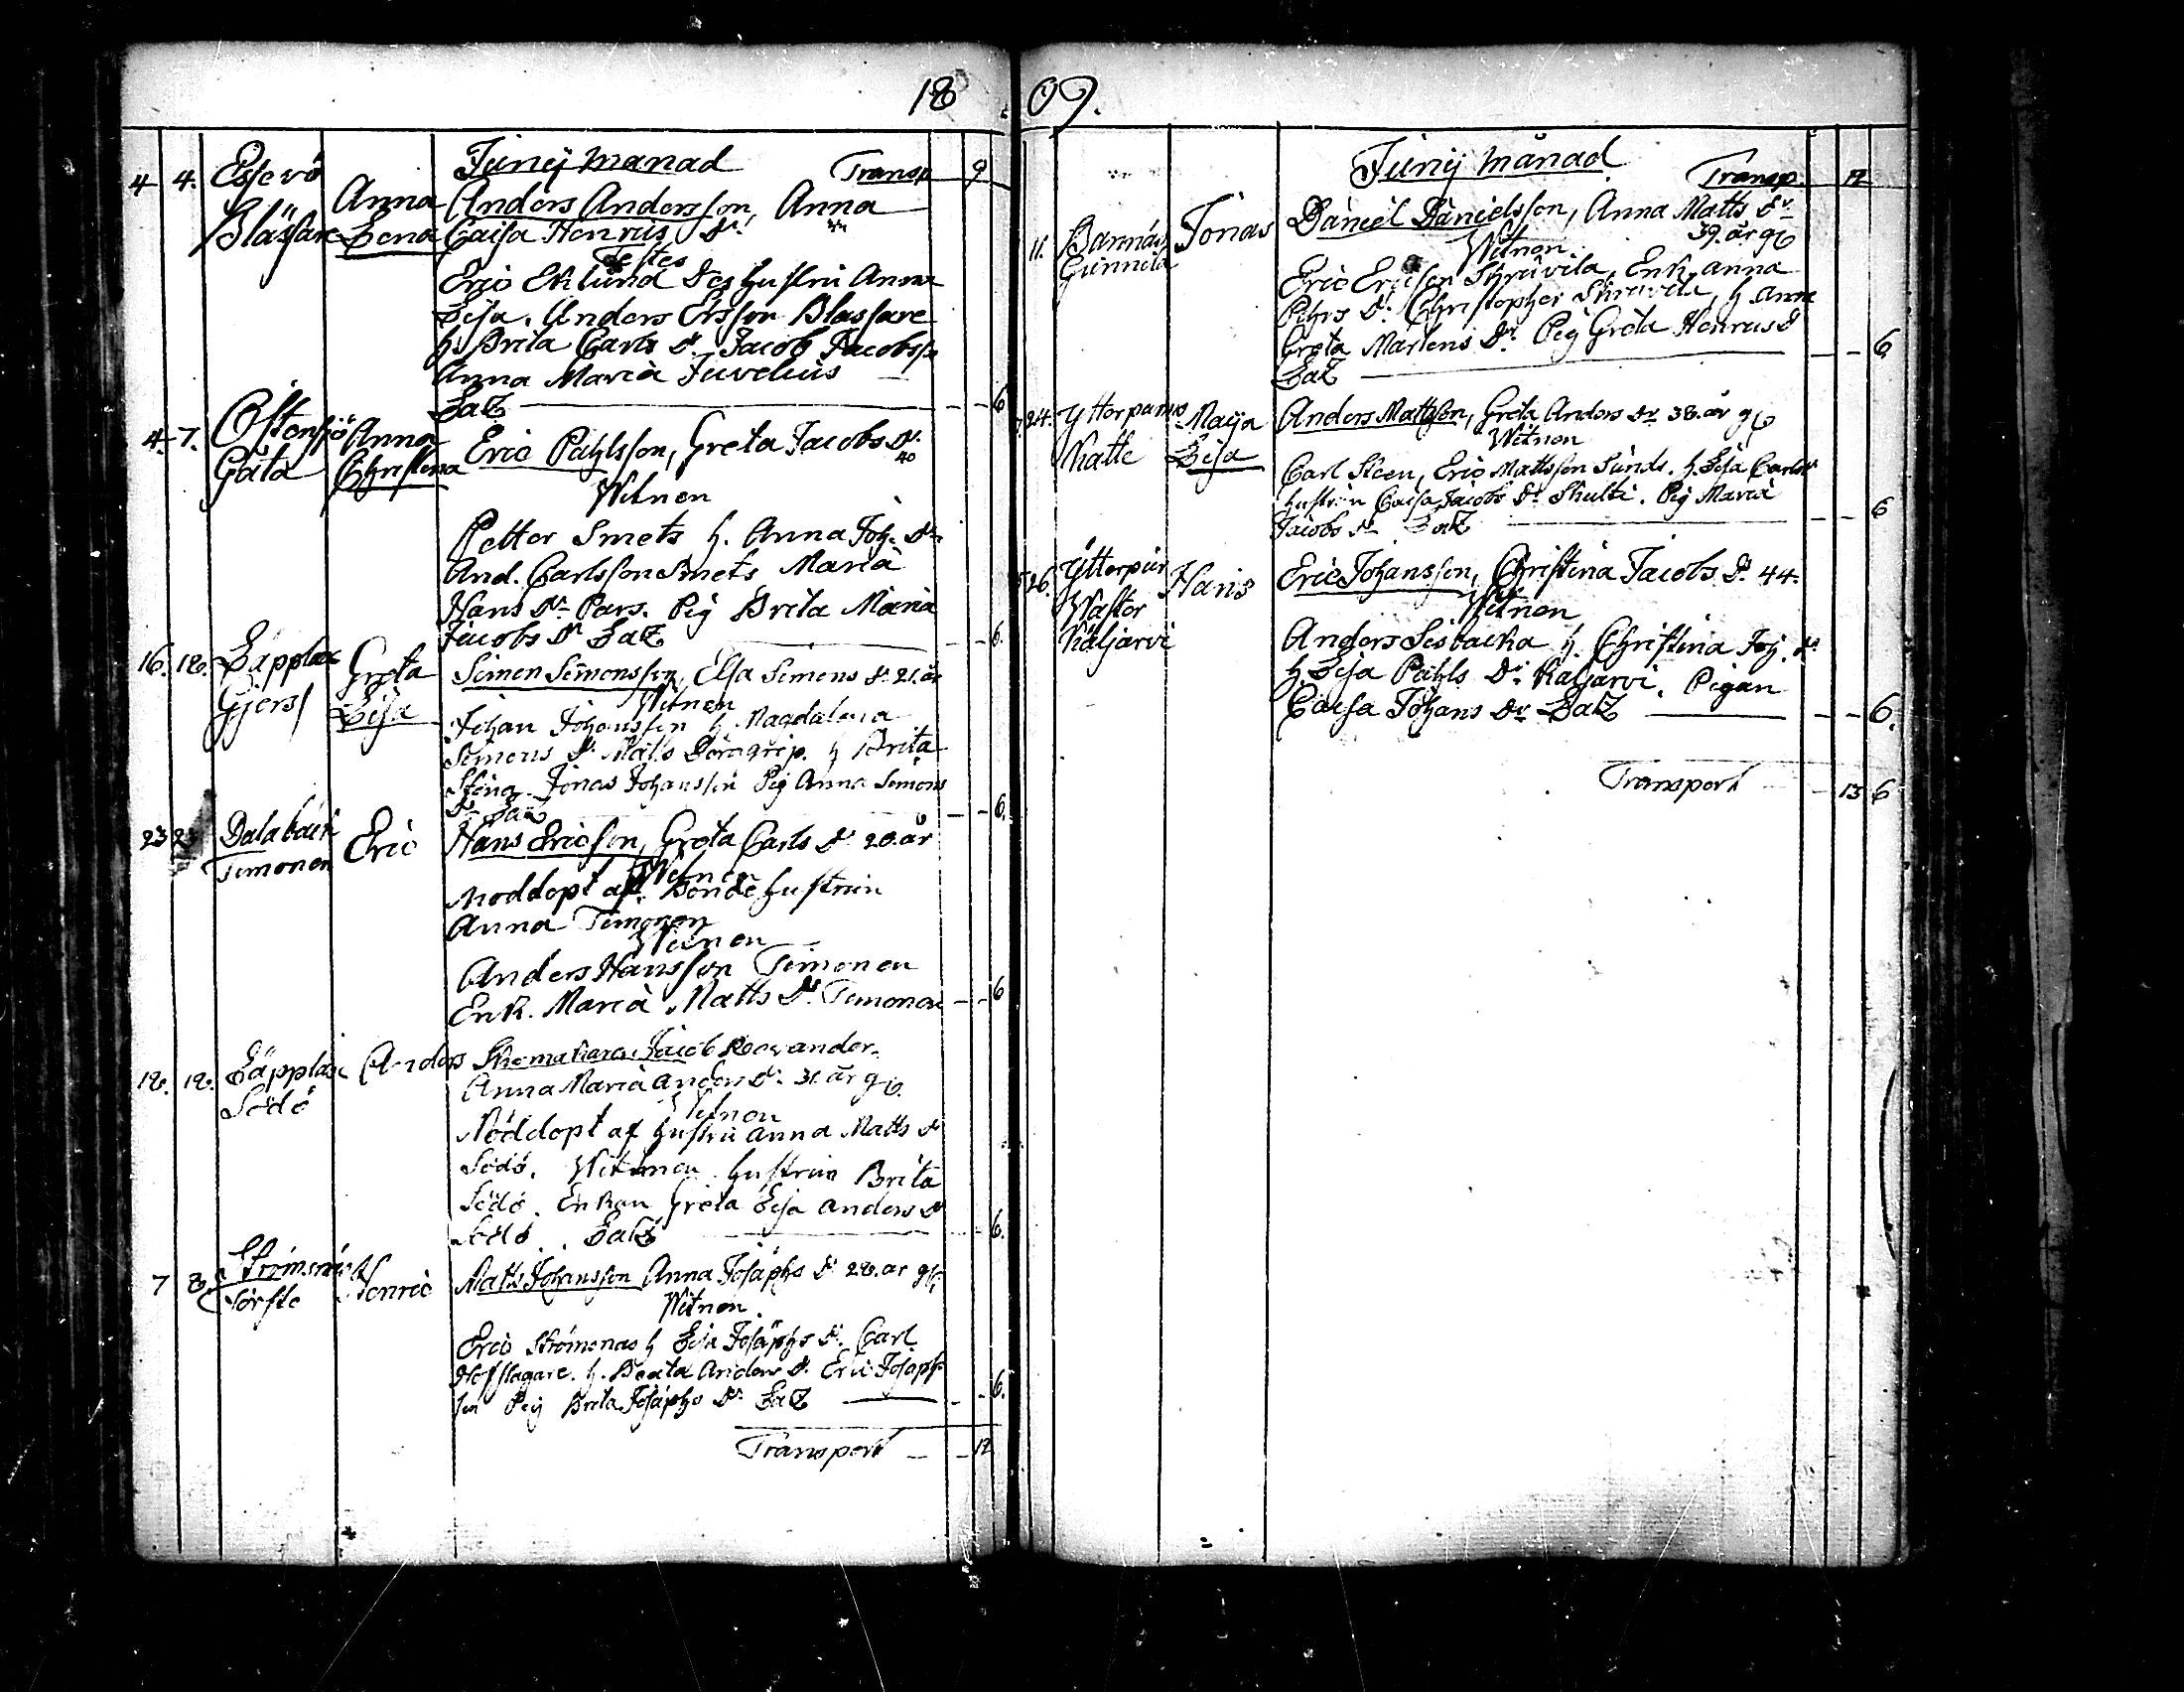 18
09.
Junij Manad Transp 9
4 4. Esse vö Anna Anders Andersson, Anna
Blässare Lena Caisa Henrics Dr
Testes
Eric Eklund Des hustru Anna
Lisa. Anders Ersson Blassare
h. Brita Carls Dr. Jacob Jacobss
Anna Maria Juvelius
Laß 6
4. 7. Östensjö Anna Eric Påhlsson, Greta Jacobs Dr. 40
Gata Christina
Witnen
Petter Smets h. Anna Joh. Dr
And. Carlsson Smets Maria
Hans Dr Pars. Pig Brita Maria
Jacobs Dr Laß 6.
16. 18. Läpplax Greta Simon Simonsson, Elsa Simons dr 21. år
Gjers Lisa Witnen
Johan Johansson h. Magdalena
Simons Dr Matts h Brita
Jonas Johansson Pig Anna Simons
Dr Laß 6.
23 Dalaback Eric Hans Ericson, Greta Carls Dr 20. år
Timonen Witnen
Noddopt af Bonde hustrun
Anna Timonen
Witnen
Anders Hansson Timonen
Enk. Maria Matts Dr. Timonen 6
18. 18. Läpplax Anders Skomakaren Jacob
Södö Anna Maria Anders Dr 31. år g.
Witnen
Nöddopt af hustru Anna Matts d
Södö. Witnen hustrun Brita
Södö. Enkan Greta Lisa Anders Dr
Södö. Laß 6.
7 8 Henric Matts Johansson Anna Josäphs Dr 28. ar g.
Witnen.
Eric Strömsnäs h Lisa Josäphs Dr. Carl
Hofslagare. h. Beata Anders d. Eric Josaph
son Pig Brita Josäphs Dr Laß 6.
Transport 12
Junij Månad Transp. 12
11. Bannäs Jonas Daniel Danielsson, Anna Matts Dr
Gunnila 39. år g.
Witnen
Eric Ericson Skruvila, Enk. Anna
Pehrs Dr. Christopher Skruvila, h. Anna
Greta Martens Dr. Pig Greta Henrics d
Laß 6
24. Ytterpurmo Maija Anders Mattsson, Greta Anders Dr 38. år g
Katte Lisa Witnen
Carl Steen, Eric Mattsson Sunds. h. Lisa Carls
hustrun Caisa Jacobs Dr Skulti. Pig Maria
Jacobs Dr Laß 6
26. Ytterpur Hans Eric Johansson, Christina Jacobs D. 44.
Waster Witnen
Käljarvi Anders Sisbacka h. Christina Joh. dr
h. Lisa Pahls Dr Kaljarvi. Pigan
Caisa Johans Dr Laß 6.
Transport 13 6